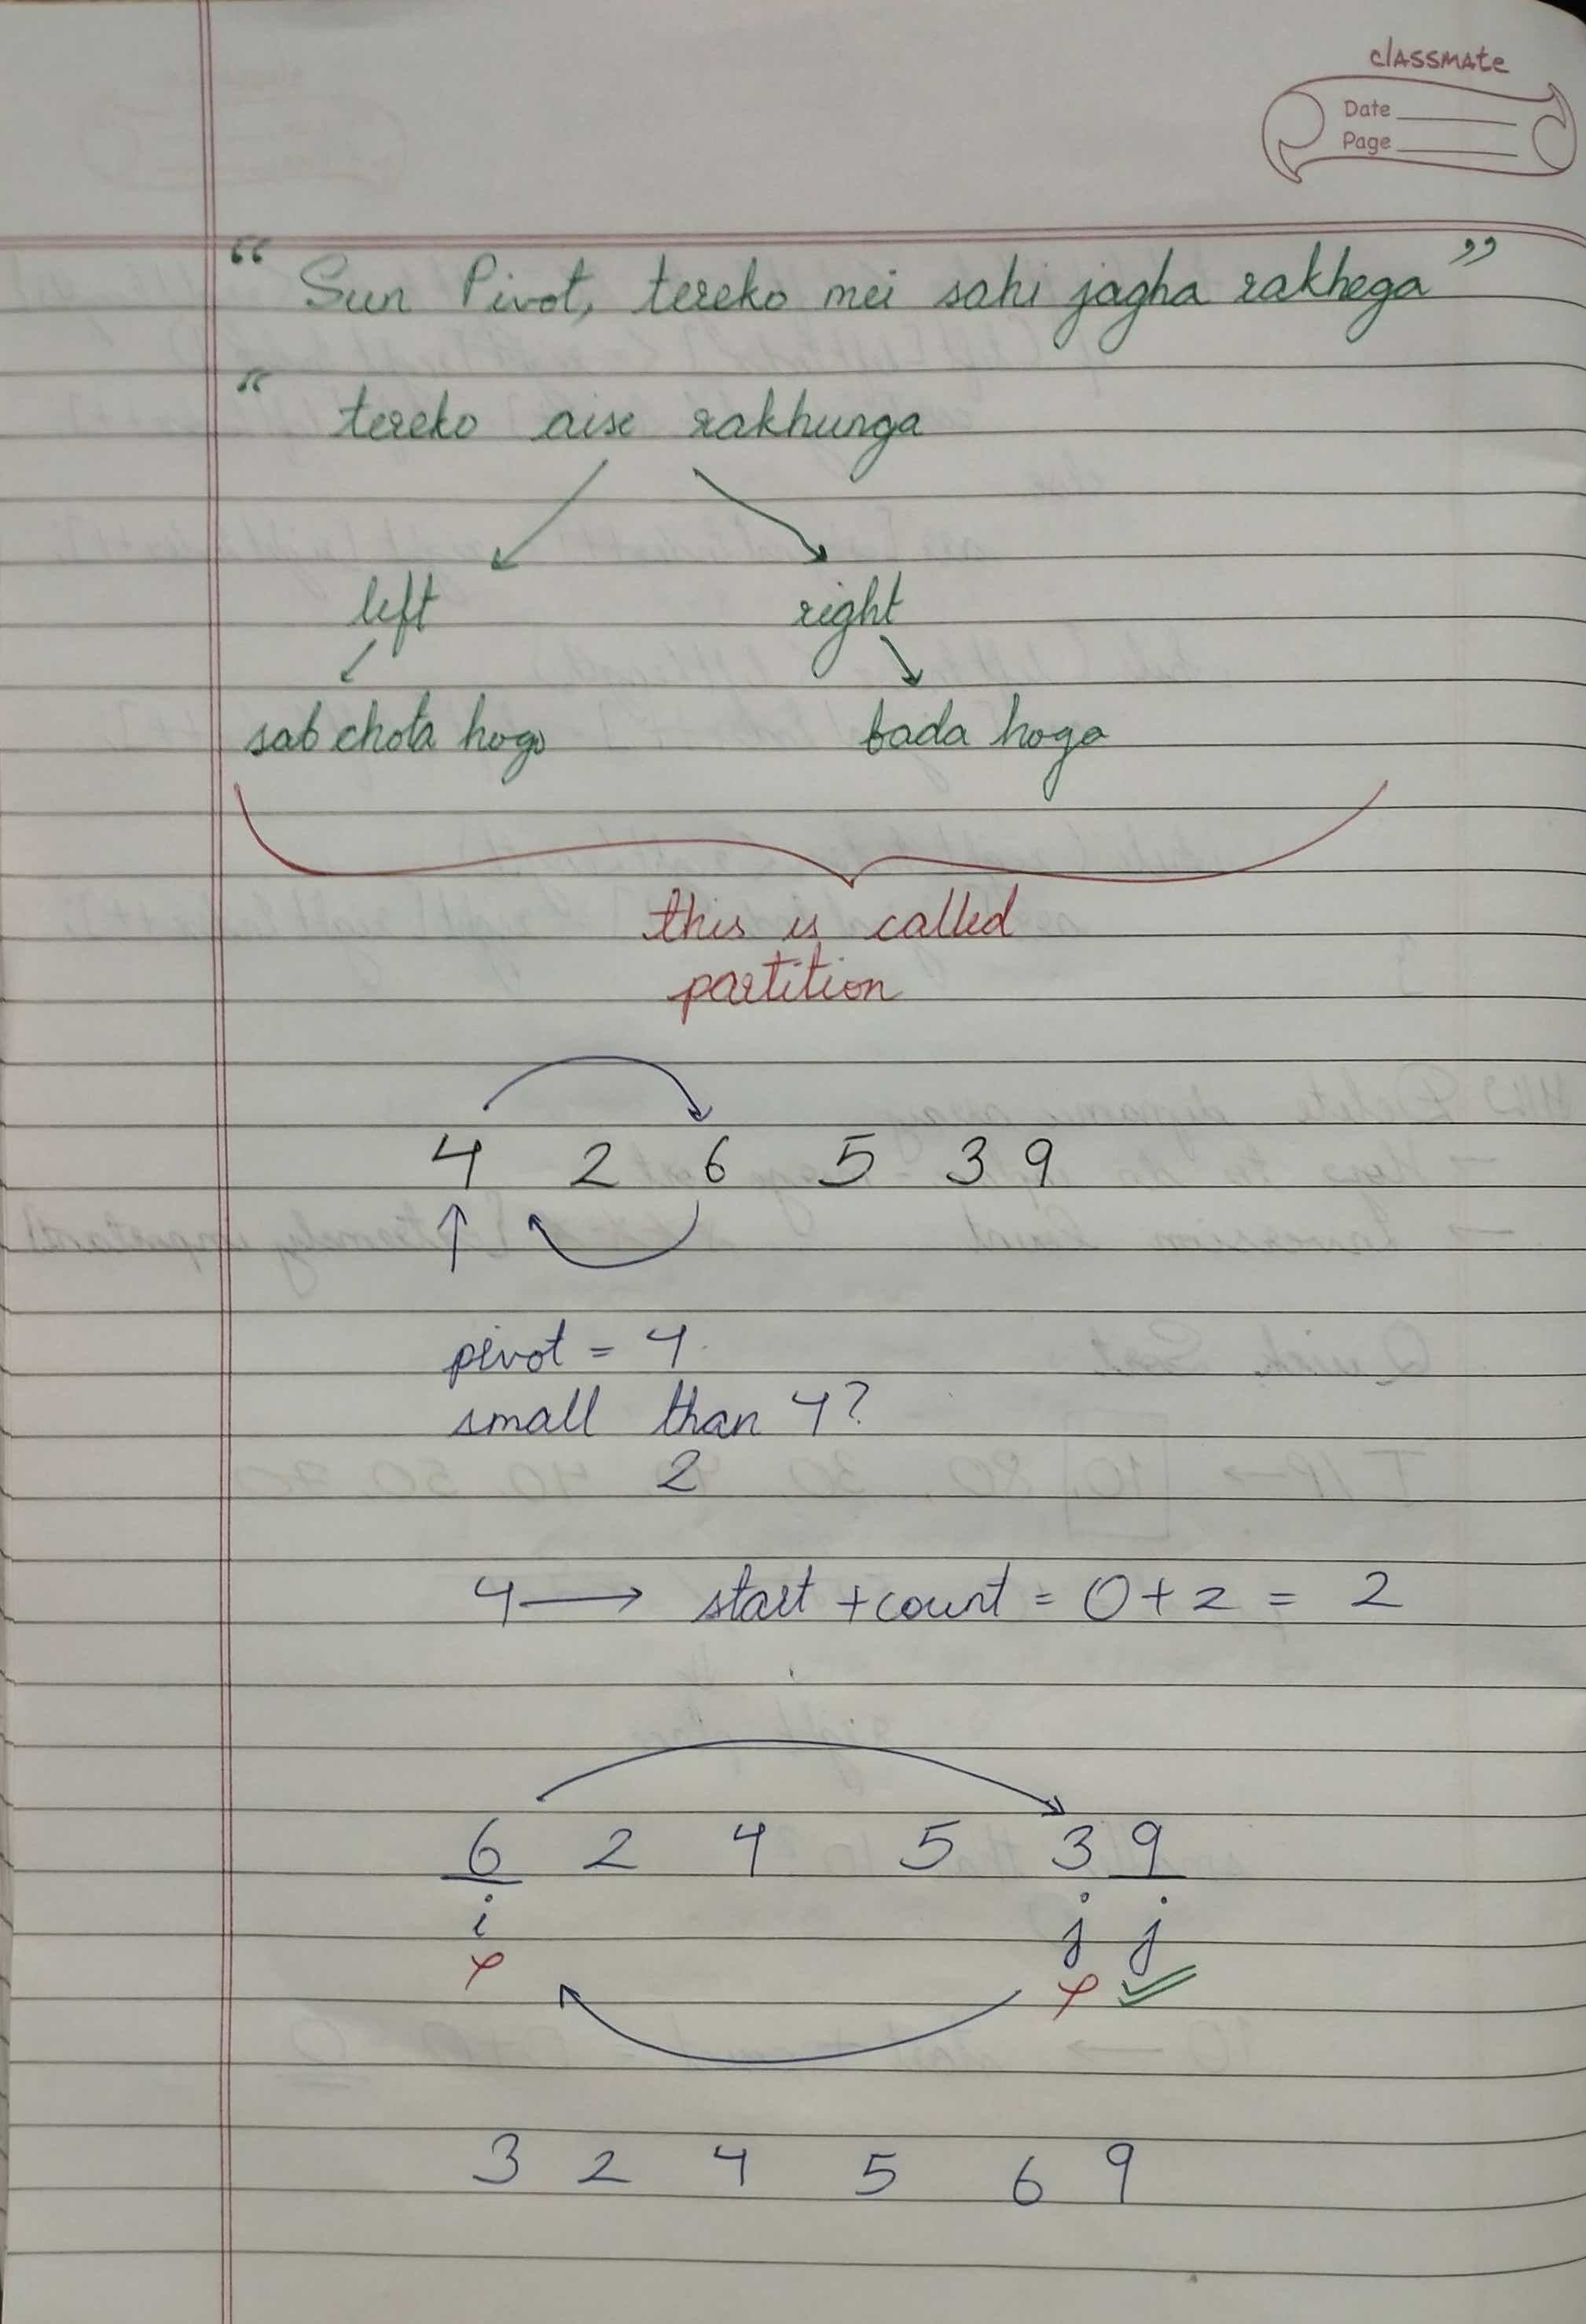 classmate
Date
Page
“ Sun Pivot, tereko mei sahi jagha rakhega ”
“ tereko aise rakhunga
left right
sab chota hoga bada hoga
this is called
partition
4 2 6 5 3 9
pivot = 4
small than 4?
2
4 → start + count = 0 + 2 = 2
6 2 4 5 3 9
i j j
3 2 4 5 6 9